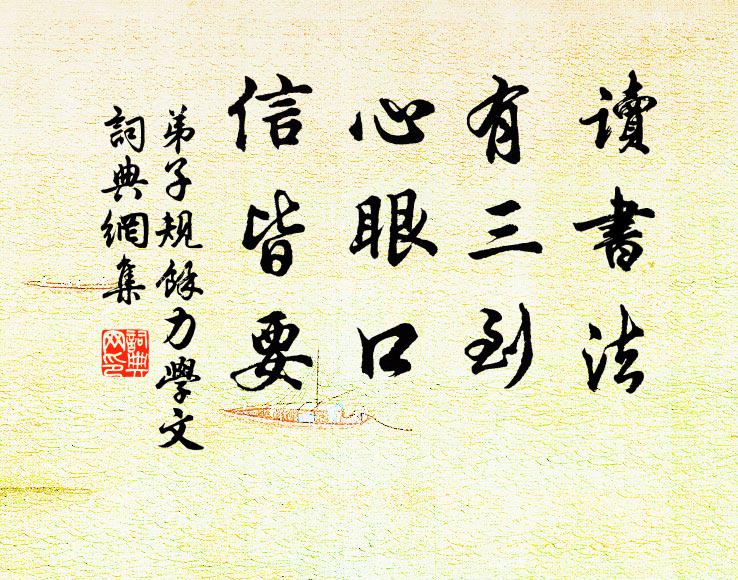 讀書法
有三到
心眼口
信皆要
弟子規餘力學文
詞典網集
詞典
网印